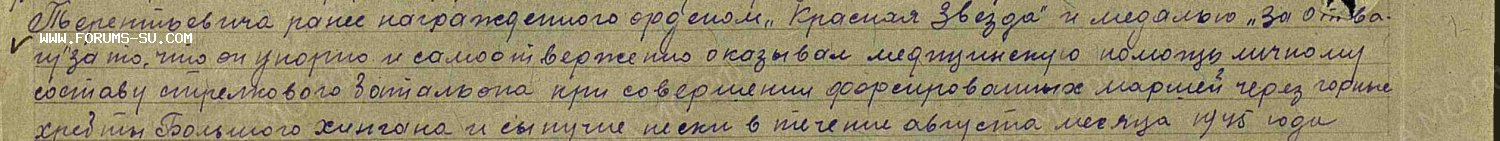 Терентьевича ранее награжденного орденом „Красная Звезда" и медалью „За отва-
WWW.FORUMS-SU.COM
гу" за то, что он упорно и самоотверженно оказывал медицинскую помощь личному
составу стрелкового батальона при совершении форсированных маршей через горные
хребты Большого Хингана и сыпучие пески в течение августа месяца 1945 года